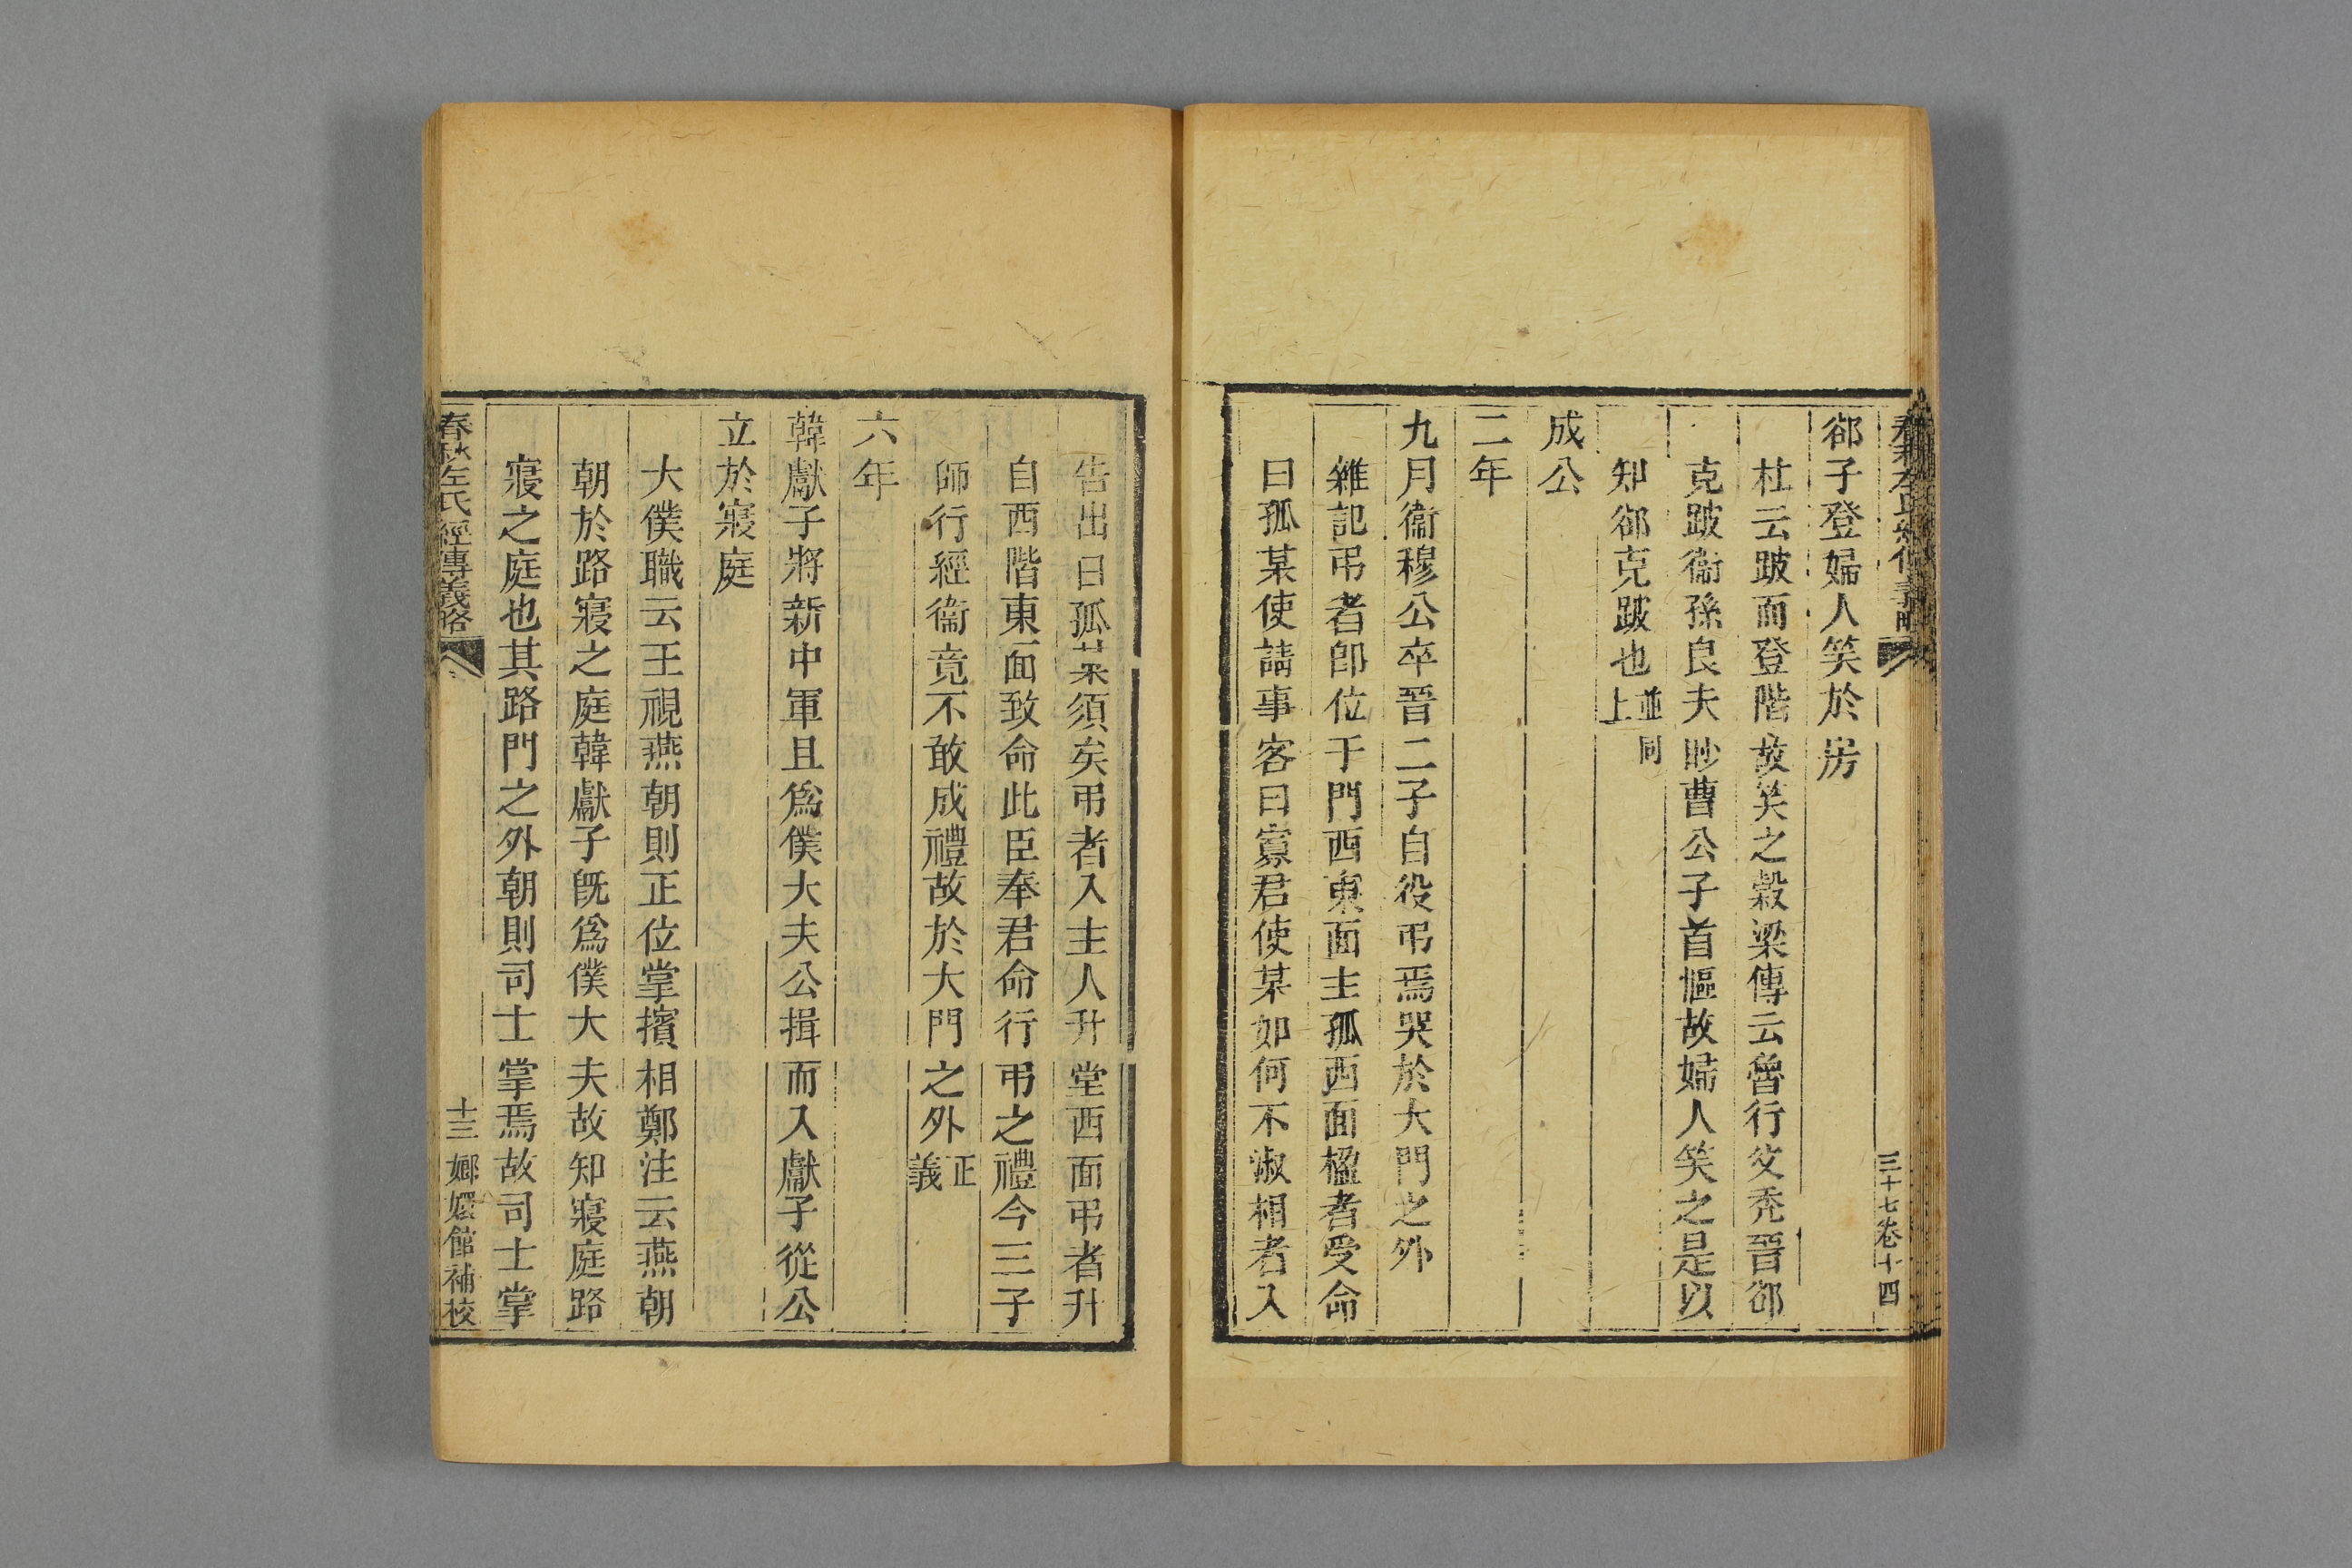 三十七卷十四
郤子登婦人笑於房
杜云跛而登階故笑之穀梁傳云魯行父禿晉郤
克跛衞孫良夫眇曹公子首傴故婦人笑之是以
知郤克跛也並同上
成公
二年
九月衞穆公卒晉二子自役弔焉哭於大門之外
雜記弔者卽位于門西東面主孤西面相者受命
曰孤某使請事客曰寡君使某如何不淑相者入
告出曰孤某須矣弔者入主人升堂西面弔者升
自西階東面致命此臣奉君命行弔之禮今三子
師行經衞竟不敢成禮故於大門之外正義
六年
韓獻子將新中軍且爲僕大夫公揖而入獻子從公
立於寢庭
大僕職云王視燕朝則正位掌擯相鄭注云燕朝
朝於路寢之庭韓獻子旣爲僕大夫故知寢庭路
寢之庭也其路門之外朝則司士掌焉故司士掌
春秋左氏經傳義略 十三 嫏嬛館補校